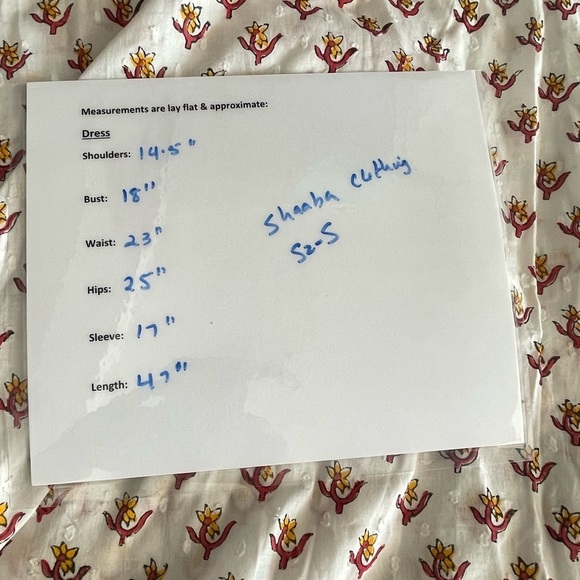 Measurements are lay flat & approximate:
Dress
Shoulders: 14.5"
Bust: 18"
Waist: 23"
Hips: 25"
Sleeve: 17"
Length: 47"
Shaaba Clothing
Sz-S